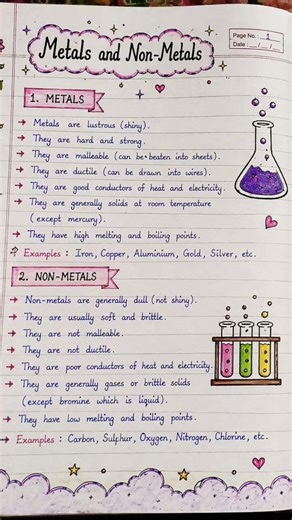 Page No. : 1
Date : __/__/__
Metals and Non-Metals
1. METALS
→ Metals are lustrous (shiny).
→ They are hard and strong.
→ They are malleable (can be beaten into sheets).
→ They are ductile (can be drawn into wires).
→ They are good conductors of heat and electricity.
→ They are generally solids at room temperature
(except mercury).
→ They have high melting and boiling points.
Examples : Iron, Copper, Aluminium, Gold, Silver, etc.
2. NON-METALS
→ Non-metals are generally dull (not shiny).
→ They are usually soft and brittle.
→ They are not malleable.
→ They are not ductile.
→ They are poor conductors of heat and electricity.
→ They are generally gases or brittle solids
(except bromine which is liquid).
→ They have low melting and boiling points.
→ Examples : Carbon, Sulphur, Oxygen, Nitrogen, Chlorine, etc.